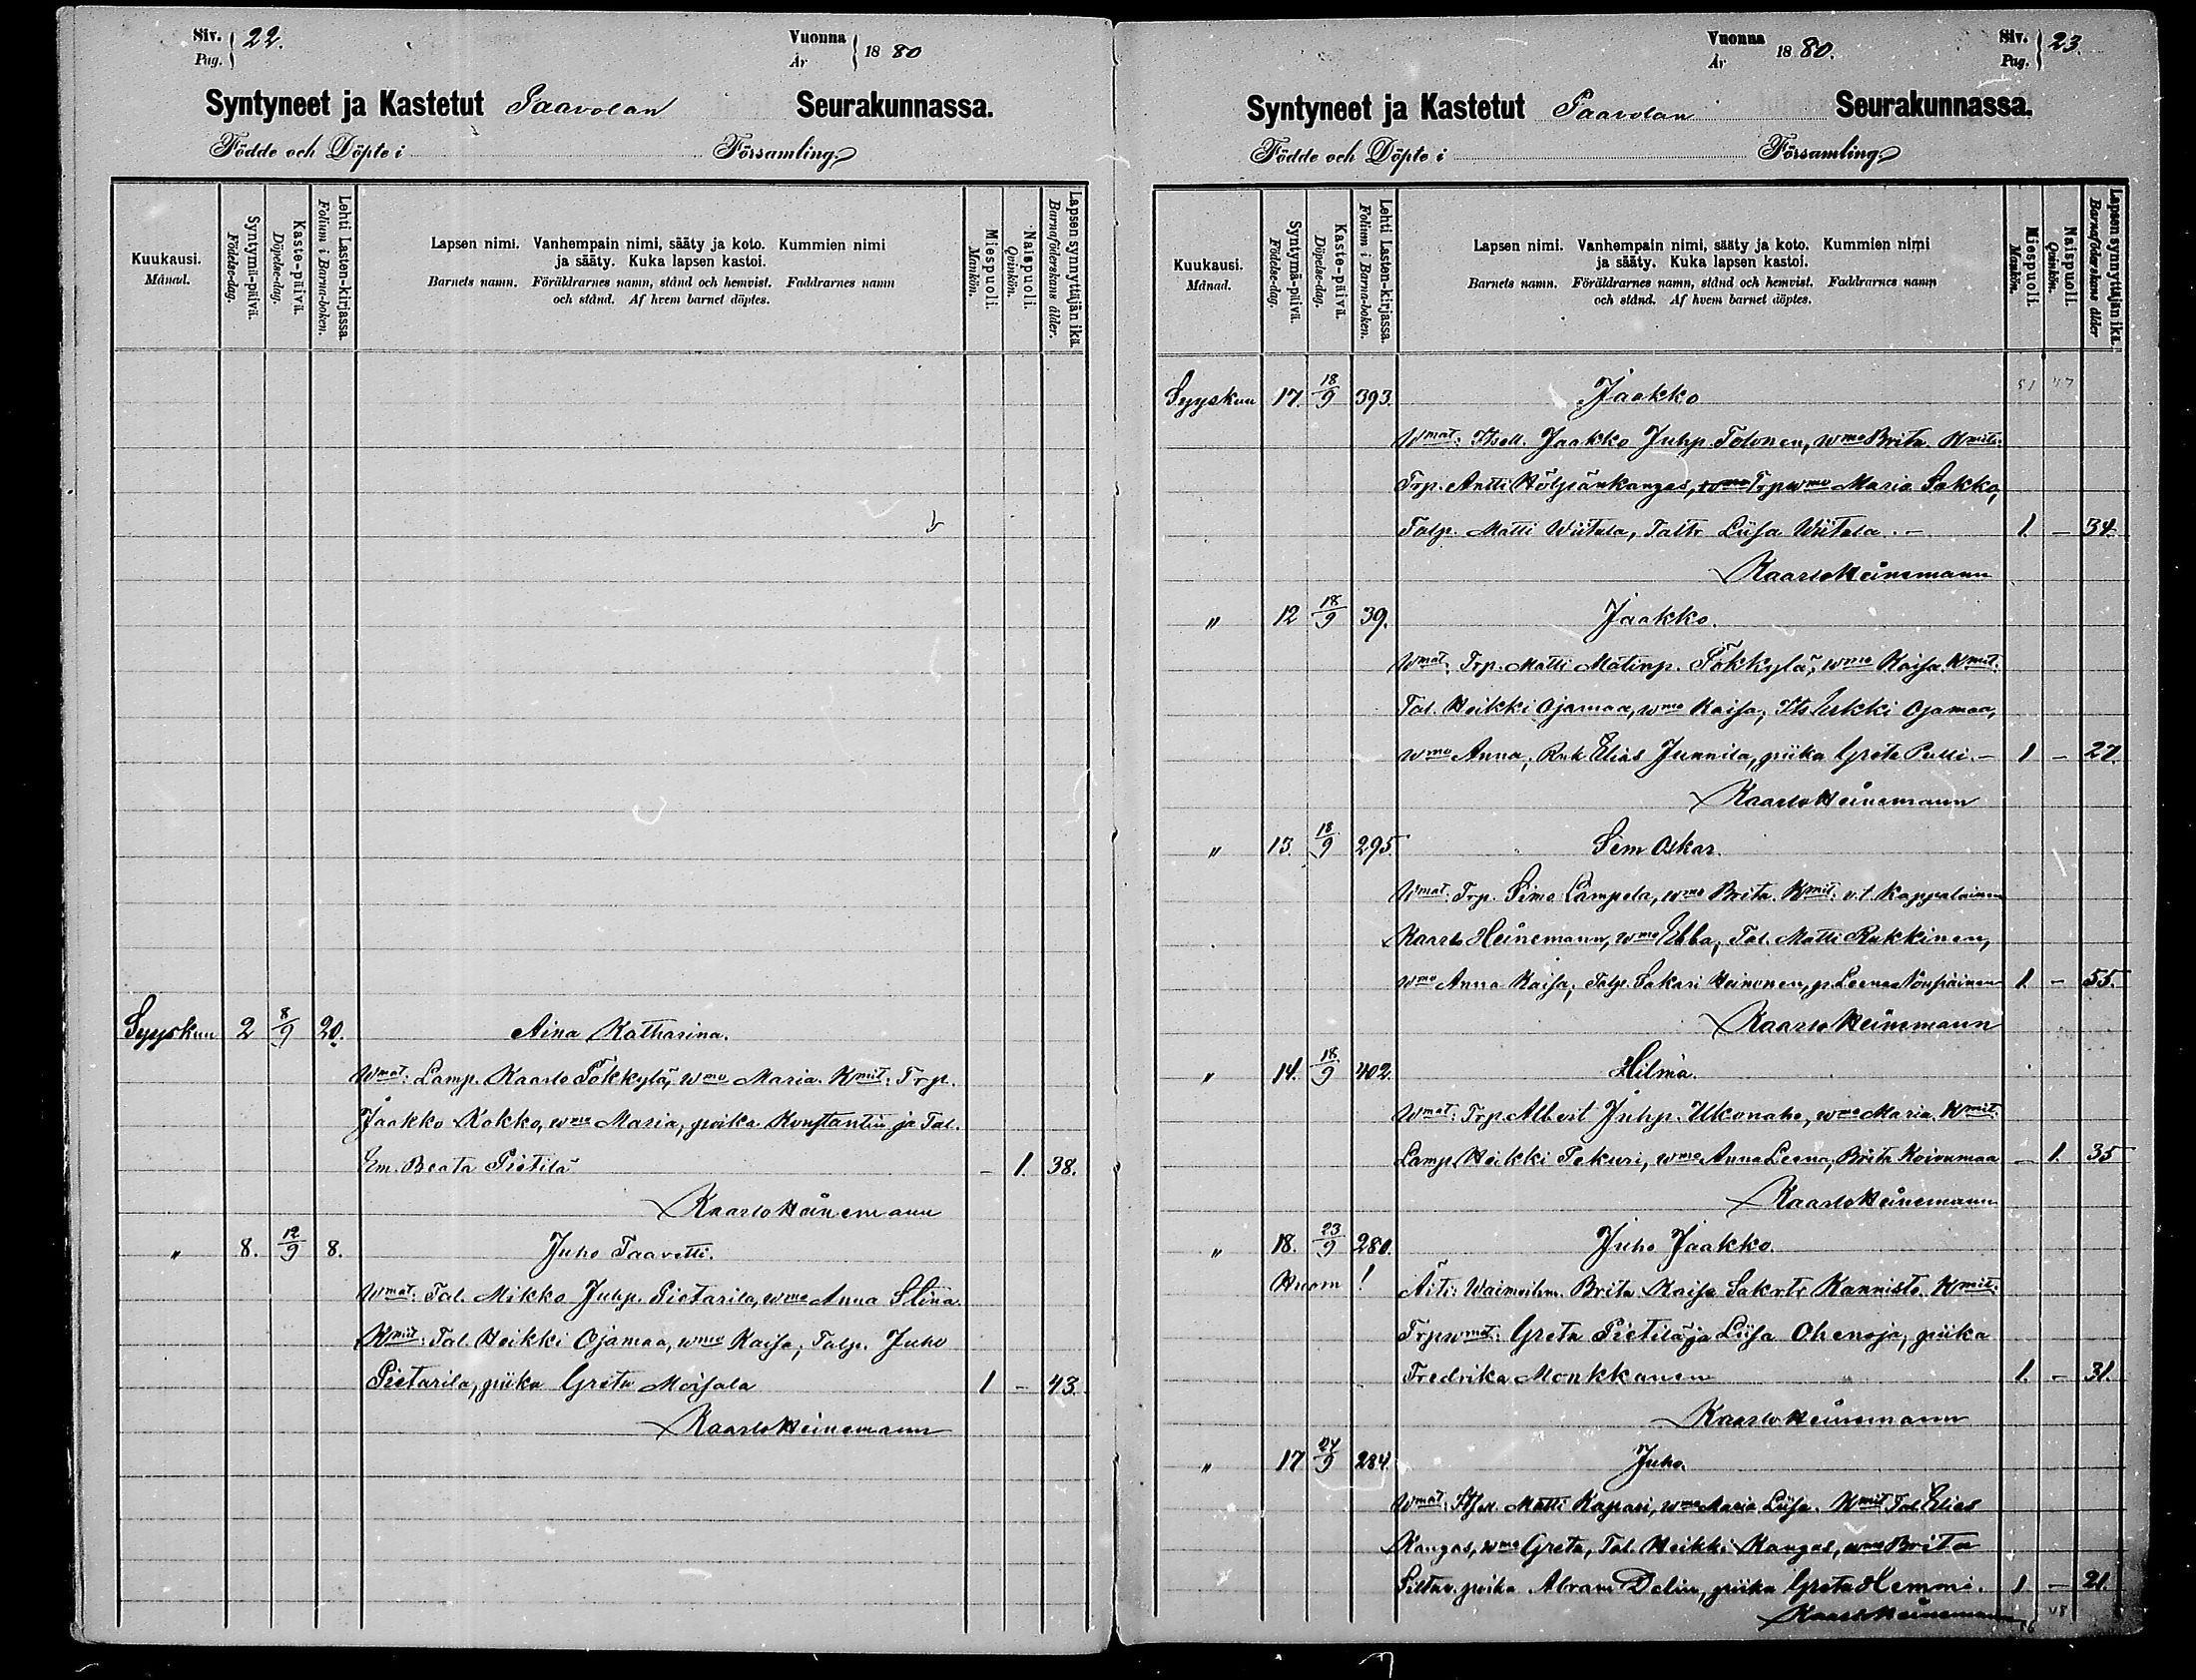 Siv. 22.
Pag.
Vuonna 1880
År
Syntyneet ja Kastetut Paavolan Seurakunnassa.
Födde och Döpte i Församling
Kuukausi.
Månad.
Syntymä-päivä.
Födelse-dag.
Kaste-päivä.
Döpelse-dag.
Lehti Lasten-kirjassa.
Folium i Barna-boken.
Lapsen nimi. Vanhempain nimi, sääty ja koto. Kummien nimi
ja sääty. Kuka lapsen kastoi.
Barnets namn. Föräldrarnes namn, stånd och hemvist. Faddrarnes namn
och stånd. Af hvem barnet döptes.
Miespuoli.
Mankön.
Naispuoli.
Qvinkön.
Lapsen synnyttäjän ikä.
Barnaföderskans ålder.
Syyskuu 2 8/9 20. Aina Katharina.
Wmat: Lamp. Kaarlo Tökkylä, wmo Maria. Kmit: Trp.
Jaakko Kokko, wmo Maria, poika Konstantin ja Tal.
Em. Beata Pietilä - 1. 38.
Kaarlo Heinemann
" 8. 12/9 8. Juho Taavetti.
Wmat: Tal. Mikko Juhp. Pietarila, wmo Anna Stina.
Kmit: Tal. Heikki Ojamaa, wmo Kaisa, Talp. Juho
Pietarila, piika Greta Moisala 1 - 43.
Kaarlo Heinemann
Vuonna 1880.
År
Siv. 23.
Pag.
Syntyneet ja Kastetut Paavolan Seurakunnassa.
Födde och Döpte i Församling
Kuukausi.
Månad.
Syntymä-päivä.
Födelse-dag.
Kaste-päivä.
Döpelse-dag.
Lehti Lasten-kirjassa.
Folium i Barna-boken.
Lapsen nimi. Vanhempain nimi, sääty ja koto. Kummien nimi
ja sääty. Kuka lapsen kastoi.
Barnets namn. Föräldrarnes namn, stånd och hemvist. Faddrarnes namn
och stånd. Af hvem barnet döptes.
Miespuoli.
Mankön.
Naispuoli.
Qvinkön.
Lapsen synnyttäjän ikä.
Barnaföderskans ålder
Syyskuu 17. 18/9 393. Jaakko 51 47
Wmat: Itsell. Jaakko Juhp. Tolonen, wmo Brita. Kmit:
Trp. Antti Hölpänkangas, Trpwmo Maria Sakko,
Talp. Matti Wiitala, Taltr Liisa Wiitala. - 1. - 34.
Kaarlo Heinemann
" 12 18/9 39. Jaakko.
Wmat: Trp. Matti Matinp. Tökkylä, wmo Kaisa. Kmit:
Tal. Heikki Ojamaa, wmo Kaisa, Its Erkki Ojamaa,
wmo Anna, Rnk Elias Junnila, piika Greta Pulli. - 1 - 27.
Kaarlo Heinemann
" 13. 18/9 295. Sim Oskar.
Wmat: Trp. Simo Lampela, wmo Brita. Kmit: v.t. Kappalainen
Kaarlo Heinemann, wmo Ebba, Tal. Matti Rukkinen,
wmo Anna Kaisa, Talp. Sakari Heinonen, p. Leena 1. - 55.
Kaarlo Heinemann
" 14. 18/9 402. Hilma.
Wmat: Trp. Albert Juhp. Ukonaho, wmo Maria. Kmit:
Lamp. Heikki Pekuri, wmo Anna Leena, Brita Koivumaa - 1. 35
Kaarlo Heinemann
" 18. 23/9 280. Juho Jaakko.
Huom! Äiti: Waimoihm. Brita Kaisa Sakrtr Kannisto. Kmit:
Trpwmot: Greta Pietilä ja Liisa Ohenoja, piika
Fredrika Monkkanen 1. - 31.
Kaarlo Heinemann
" 17 24/9 284. Juho.
Wmat: Itsell. Matti Kapari, wmo Maria Liisa. Kmit Tal Elias
Kangas, wmo Greta, Tal. Heikki Kangas, wmo Brita
poika Abram Delin, piika Greta Hemmi. 1 - 21.
Kaarlo Heinemann 56 48